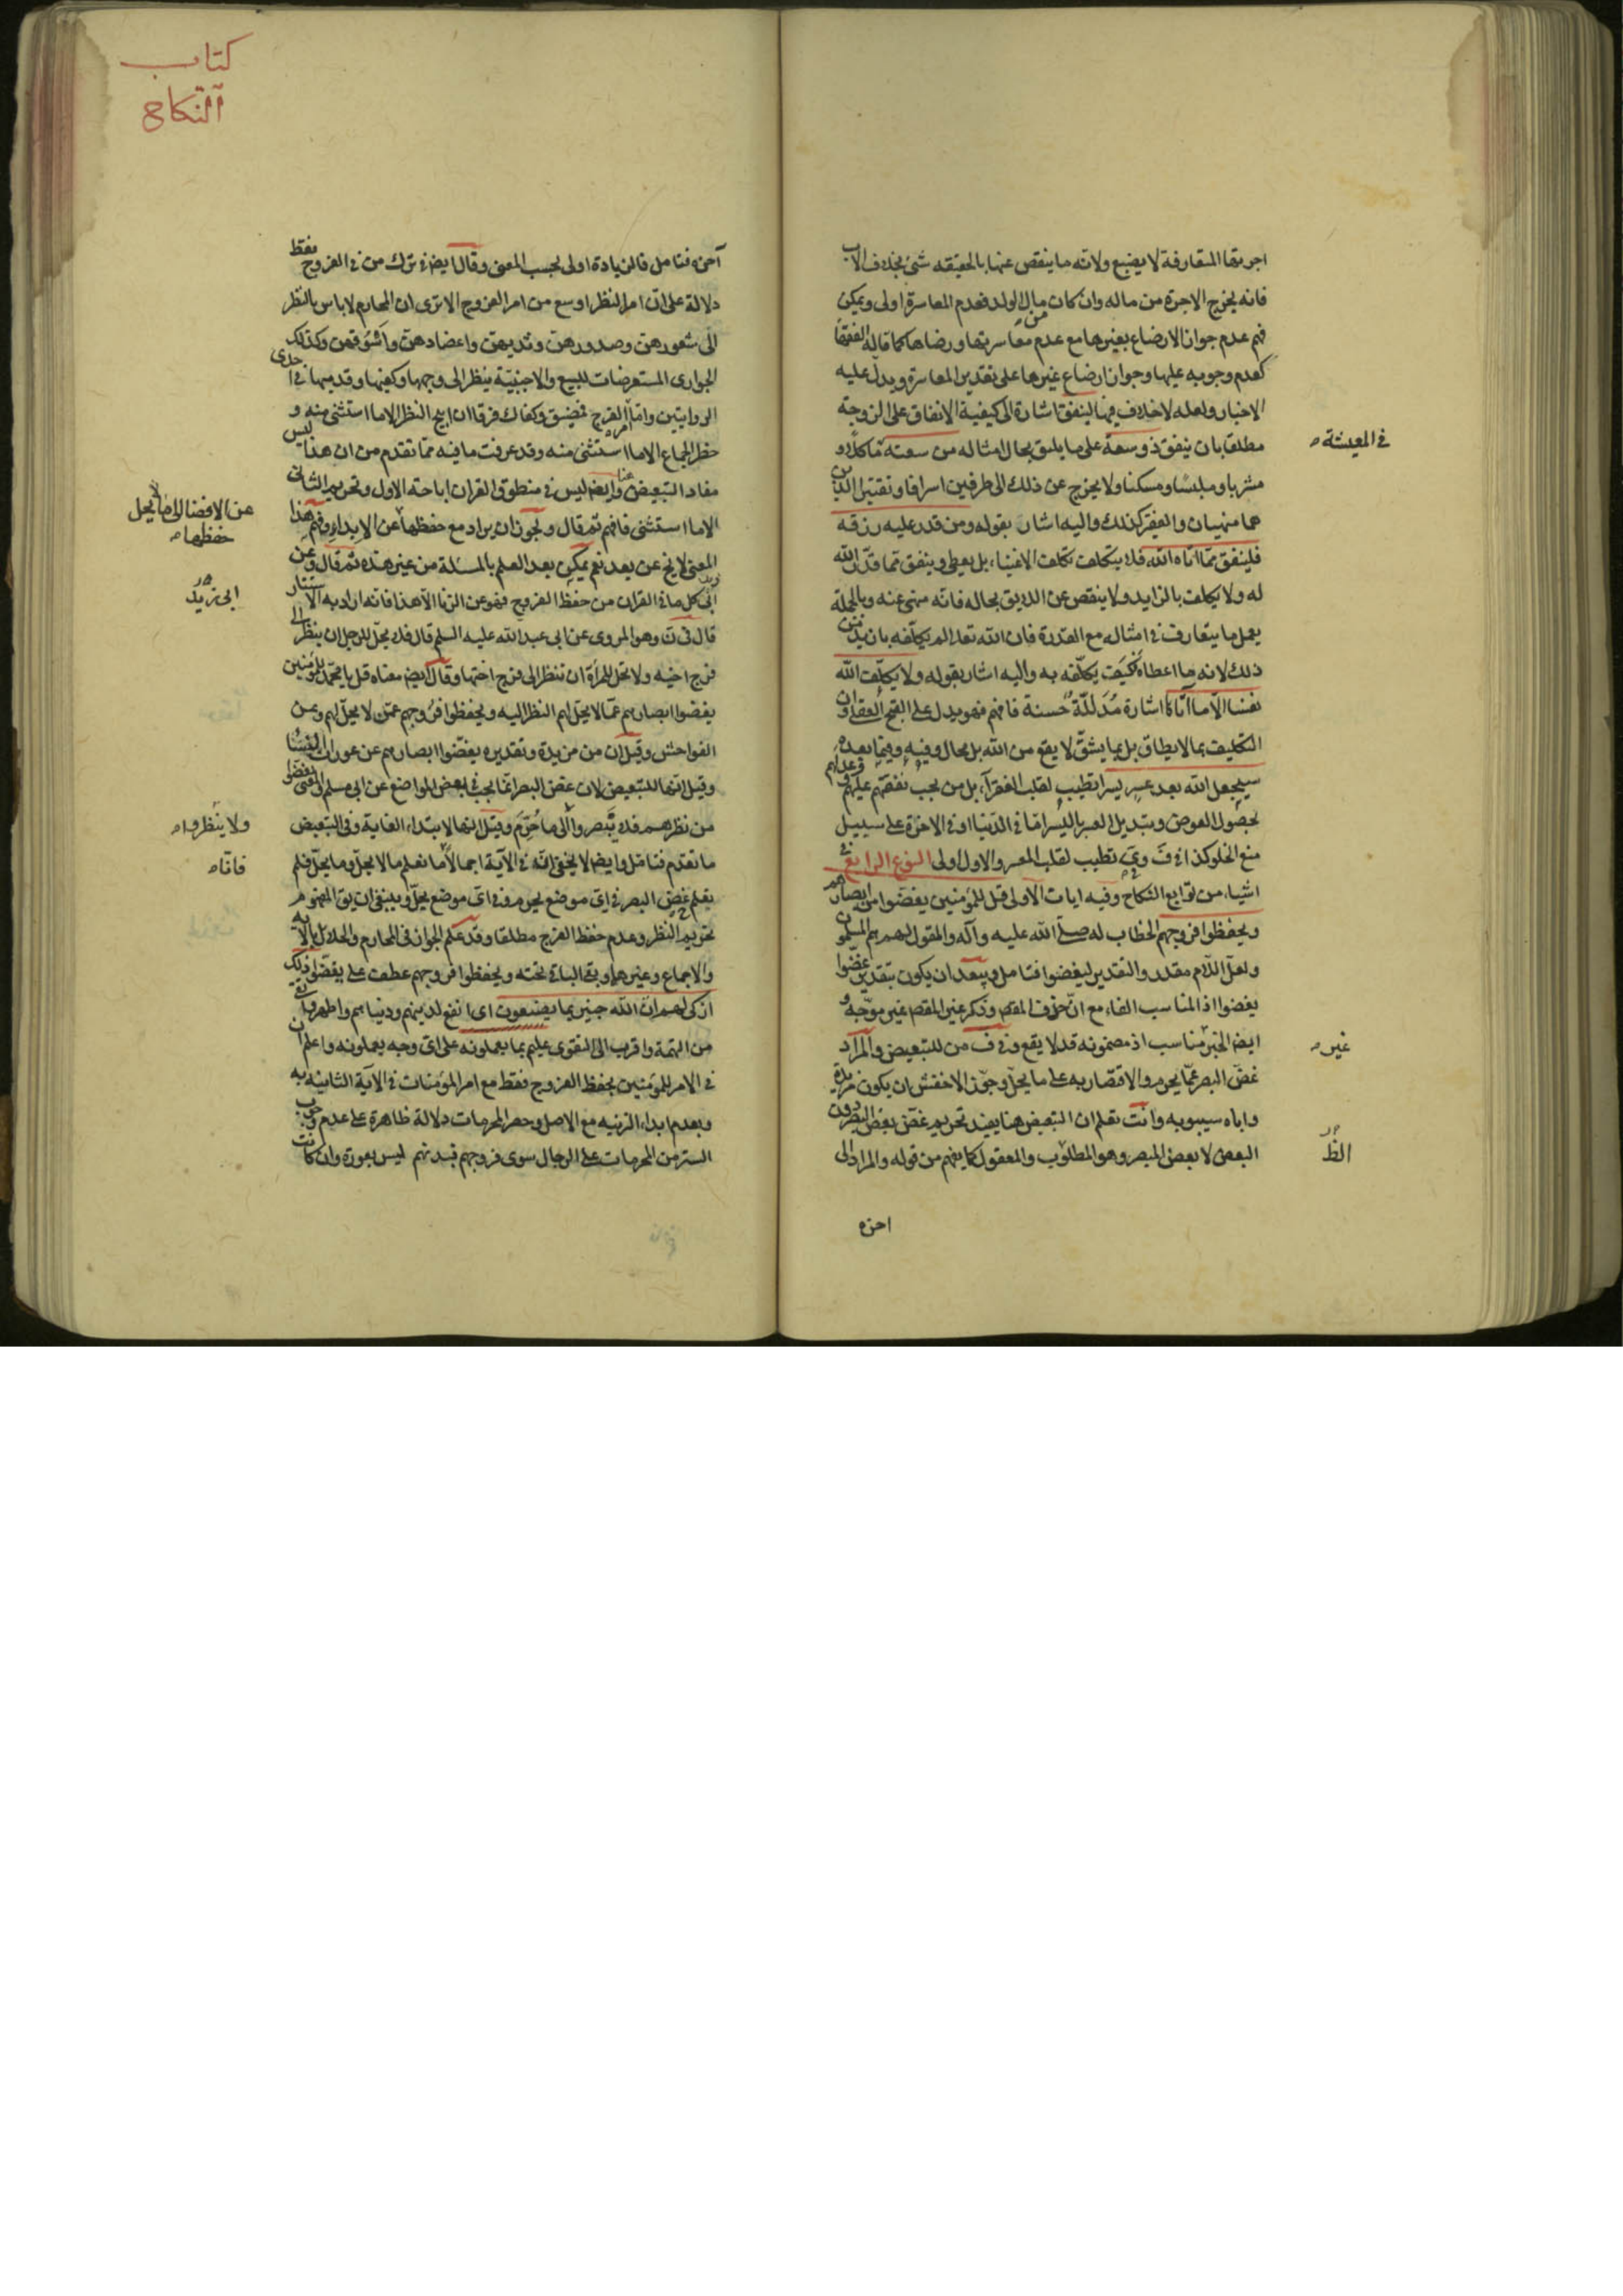 اجرتها المتعارفة لا يضيع ولانه ما ينقص عنها بالحقيقه شئ بخلاف الاب
فانه يخرج الاجرة من ماله وان كان من مال الولد فعدم المعاسرة اولى ويمكن
فهم عدم جواز الارضاع بغيرها مع عدم معاسرتها ورضاها كما قاله الفقها
كعدم وجوبه عليها وجواز ارضاع غيرها على تقدير المعاسرة ويدل عليه
الاخبار ولعله لا خلاف فيها لينفق اشارة الى كيفية الانفاق على الزوجة
مطلقا بان ينفق ذو سعة على ما يليق بحال امثاله من سعته مأكلا و
في المعيشة
مشربا وملبسا ومسكنا ولا يخرج عن ذلك الى طرفين اسرافا وتقتيرا اللذين
هما منهيان والفقير كذلك واليه اشار بقوله ومن قدر عليه رزقه
فلينفق مما اتاه الله فلا يتكلف تكلف الاغنياء بل يعطى وينفق مما قدر الله
له ولا يكلف بالزايد ولا ينقص عن اللايق بحاله فانه منهى عنه وبالجملة
يعمل ما يتعارف في امثاله مع القدرة فان الله تعالى لم يكلفه بازيد من
ذلك لانه ما اعطاه فكيف يكلفه به واليه اشار بقوله ولا يكلف الله
نفسا الا ما اتاها اشارة مدللة حسنة فافهم فهو يدل على القبح العقلى وان
التكليف بما لا يطاق بل بما يشق لا يقع من الله بل محال وفيه وفيما بعده
سيجعل الله بعد عسر يسرا تطييب لقلب الفقراء بل من يجب نفقتهم عليهم وعدلهم
بحصول العوض وتبديل العسر باليسر اما في الدنيا او في الاخرة على سبيل
منع الخلو كذا في ف وى تطييب لقلب المعسر والاول اولى النوع الرابع في
اشياء من توابع النكاح وفيه ايات الاولى قل للمؤمنين يغضوا من ابصارهم
ويحفظوا فروجهم الخطاب له صلى الله عليه وآله والمقول لهم هم المسلمون
ولعل اللام مقدر والتقدير ليغضوا فتامل ويبعد ان يكون بتقدير غضوا
يغضوا اذ المناسب الفاء مع ان حذف المقصود وذكر غير المقصود غير موجه و
ايضا الخبر مناسب اذ مضمونه قد لا يقع وفي ف من للتبعيض والمراد
غيره
غض البصر عما يحرم والاقتصار به على ما يحل وجوز الاخفش ان يكون مزيدة
واباه سيبويه وانت تعلم ان التبعيض هنا يفيد تحريم غض بعض البصر دون
البعض لا بعض المبصر وهو المطلوب والمعقول كما يفهم من قوله والمراد الى
الظ
اخره
كتاب
النكاح
آخره فتامل فالزيادة اولى بحسب المعنى وقال ايضا في ترك من في الفروج فقط
دلالة على ان امر النظر اوسع من امر الفروج الا ترى ان المحارم لا باس بالنظر
الى شعورهن وصدورهن وثديهن واعضادهن واسوقهن وكذلك
الجوارى المستعرضات للبيع والاجنبية ينظر الى وجهها وكفيها وقدميها في احدى
الروايتين واما امر الفرج فمضيق وكفاك فرقا ان ابيح النظر الا ما استثنى منه و
حظر الجماع الا ما استثنى منه وقد عرفت ما فيه مما تقدم من ان هذا ليس
مفاد التبعيض هنا وايضا ليس في منطوق القران اباحته الاول وتحريم الثانى
الا ما استثنى فافهم ثم قال ويجوز ان يراد مع حفظها عن الابداء وفهم هذا
عن الافضا الى ما لا يحل
حفظها
المعنى لا يخ عن بعد نعم يمكن بعد العلم بالمسئلة من غير هذه ثم قال وعن
ابن زيد
كل ما في القران من حفظ الفروج فهو عن الزنا الا هذا فانه اراد به الاستتار
قال في ن وهو المروى عن ابى عبد الله عليه السلم قال فلا يحل للرجل ان ينظر الى
فرج اخيه ولا تحل للمرأة ان تنظر الى فرج اختها وقال ايضا معناه قل يا محمد للمؤمنين
يغضوا ابصارهم عما لا يحل لهم النظر اليه ويحفظوا فروجهم عمن لا يحل لهم وعن
الفواحش وقيل ان من مزيدة وتقديره يغضوا ابصارهم عن عورات النساء
وقيل انها للتبعيض لان غض البصر انما يجب في بعض المواضع عن ابى مسلم والمعنى يغضوا
من نظرهم فلا يبصروا الى ما حرم وقيل انها لابتداء الغاية وفي التبعيض
ولا ينظروا
ما تقدم فتامل وايضا لا يخفى انه في الآية اجمالا ما نعلم ما لا يحل وما يحل فلم
فاناه
يعلم غض البصر في اى موضع يحرم وفي اى موضع يحل وينبغى ان يق المفهوم
تحريم النظر وعدم حفظ الفرج مطلقا وقد علم الجواز في المحارم والحلائل بالآية
والاجماع وغيرها وبقى الباقى تحته ويحفظوا فروجهم عطف على يغضوا ذلك
ازكى لهم ان الله خبير بما يصنعون اى انفع لدينهم ودنياهم واطهر وانفى
من التهمة واقرب الى التقوى عليم بما يعملونه على اى وجه يعملونه واعلم ان
في الامر للمؤمنين بحفظ الفروج فقط مع امر المؤمنات في الآية الثانية به
وبعدم ابداء الزينه مع الاصل وحصر المحرمات دلالة ظاهرة على عدم وجوب
الستر من المحرمات على الرجال سوى فروجهم فبدنهم ليس بعورة وان كانت